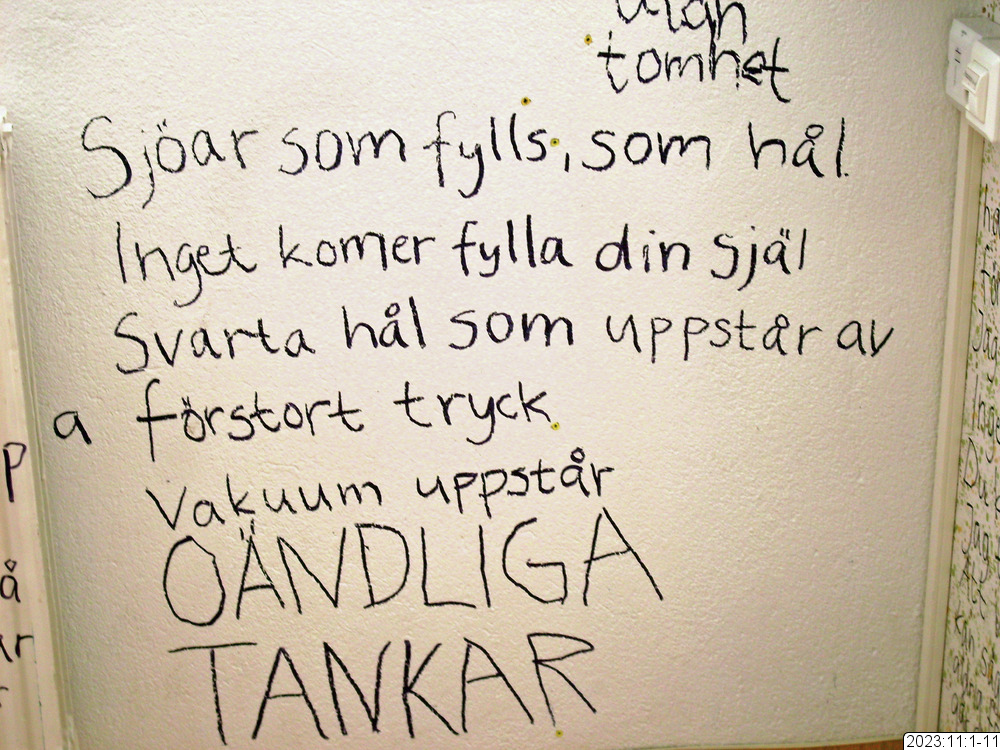 utan
tomhet
Sjöar som fylls, som hål
Inget komer fylla din själ
Svarta hål som uppstår av
a förstort tryck
Vakuum uppstår
OÄNDLIGA
TANKAR
P
å
2023:11:1-11